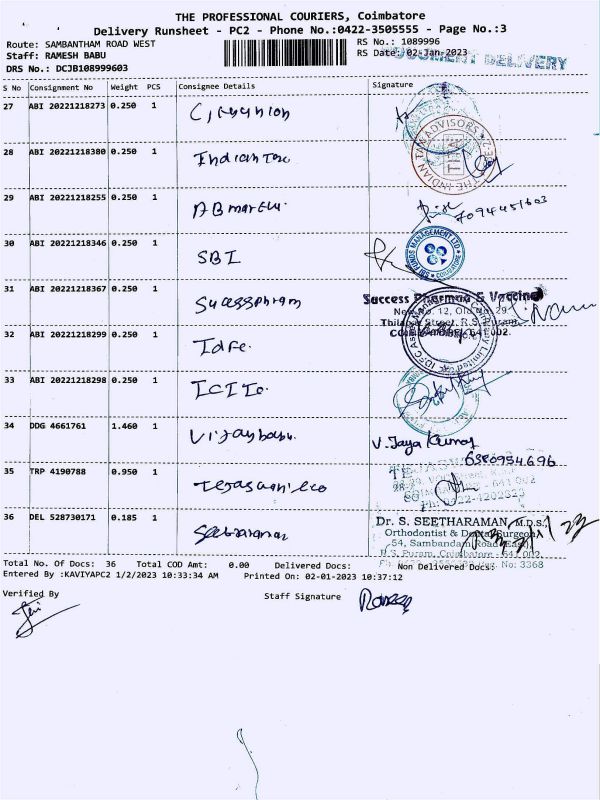 THE PROFESSIONAL COURIERS, Coimbatore
Delivery Runsheet - PC2 - Phone No.:0422-3505555 - Page No.:3
Route: SAMBANTHAM ROAD WEST
RS No.: 1089996
Staff: RAMESH BABU
RS Date: 02-Jan-2023
DOCUMENT DELIVERY
DRS No.: DCJB108999603
S No Consignment No Weight PCS Consignee Details Signature
27 ABI 20221218273 0.250 1
28 ABI 20221218380 0.250 1 Indian Tax
THE INDIAN TAX ADVISORS
29 ABI 20221218255 0.250 1
7094451603
30 ABI 20221218346 0.250 1 SBI
SBI FUNDS MANAGEMENT LTD
COIMBATORE
31 ABI 20221218367 0.250 1 Sucesspharam
Success Pharma & Vaccine
New No. 12, Old No. 29
Thilagar Street, R.S. Puram,
COIMBATORE - 641 002.
32 ABI 20221218299 0.250 1 Idfc
33 ABI 20221218298 0.250 1
34 DDG 4661761 1.460 1 Vijaybabu.
V. Jaya Kumar
6380954696
35 TRP 4190788 0.950 1
COIMBATORE - 641 002
Ph: 0422-4202323
36 DEL 528730171 0.185 1 Seetaraman
Dr. S. SEETHARAMAN, M.D.S.
Orthodontist & Dental Surgeon
54, Sambandam Road (East)
R.S. Puram, Coimbatore - 641 002
Reg. No: 3368
Total No. Of Docs: 36 Total COD Amt: 0.00 Delivered Docs: Non Delivered Docs:
Entered By :KAVIYAPC2 1/2/2023 10:33:34 AM Printed On: 02-01-2023 10:37:12
Verified By
Staff Signature